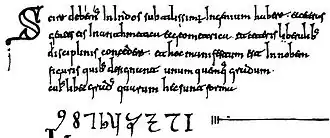 Scire debem' In Indos subtilissimū Ingenium habere. et ceteras
gentes eis In arithmetica et geometrica. et ceteris liberalib;
disciplinis concedere. et hoc manifestum est In nobem
figuris quib; designant unum quenq; gradum.
cuiuslibet gradus quarum hec sunt forma
9 8 7 6 5 4 3 2 1